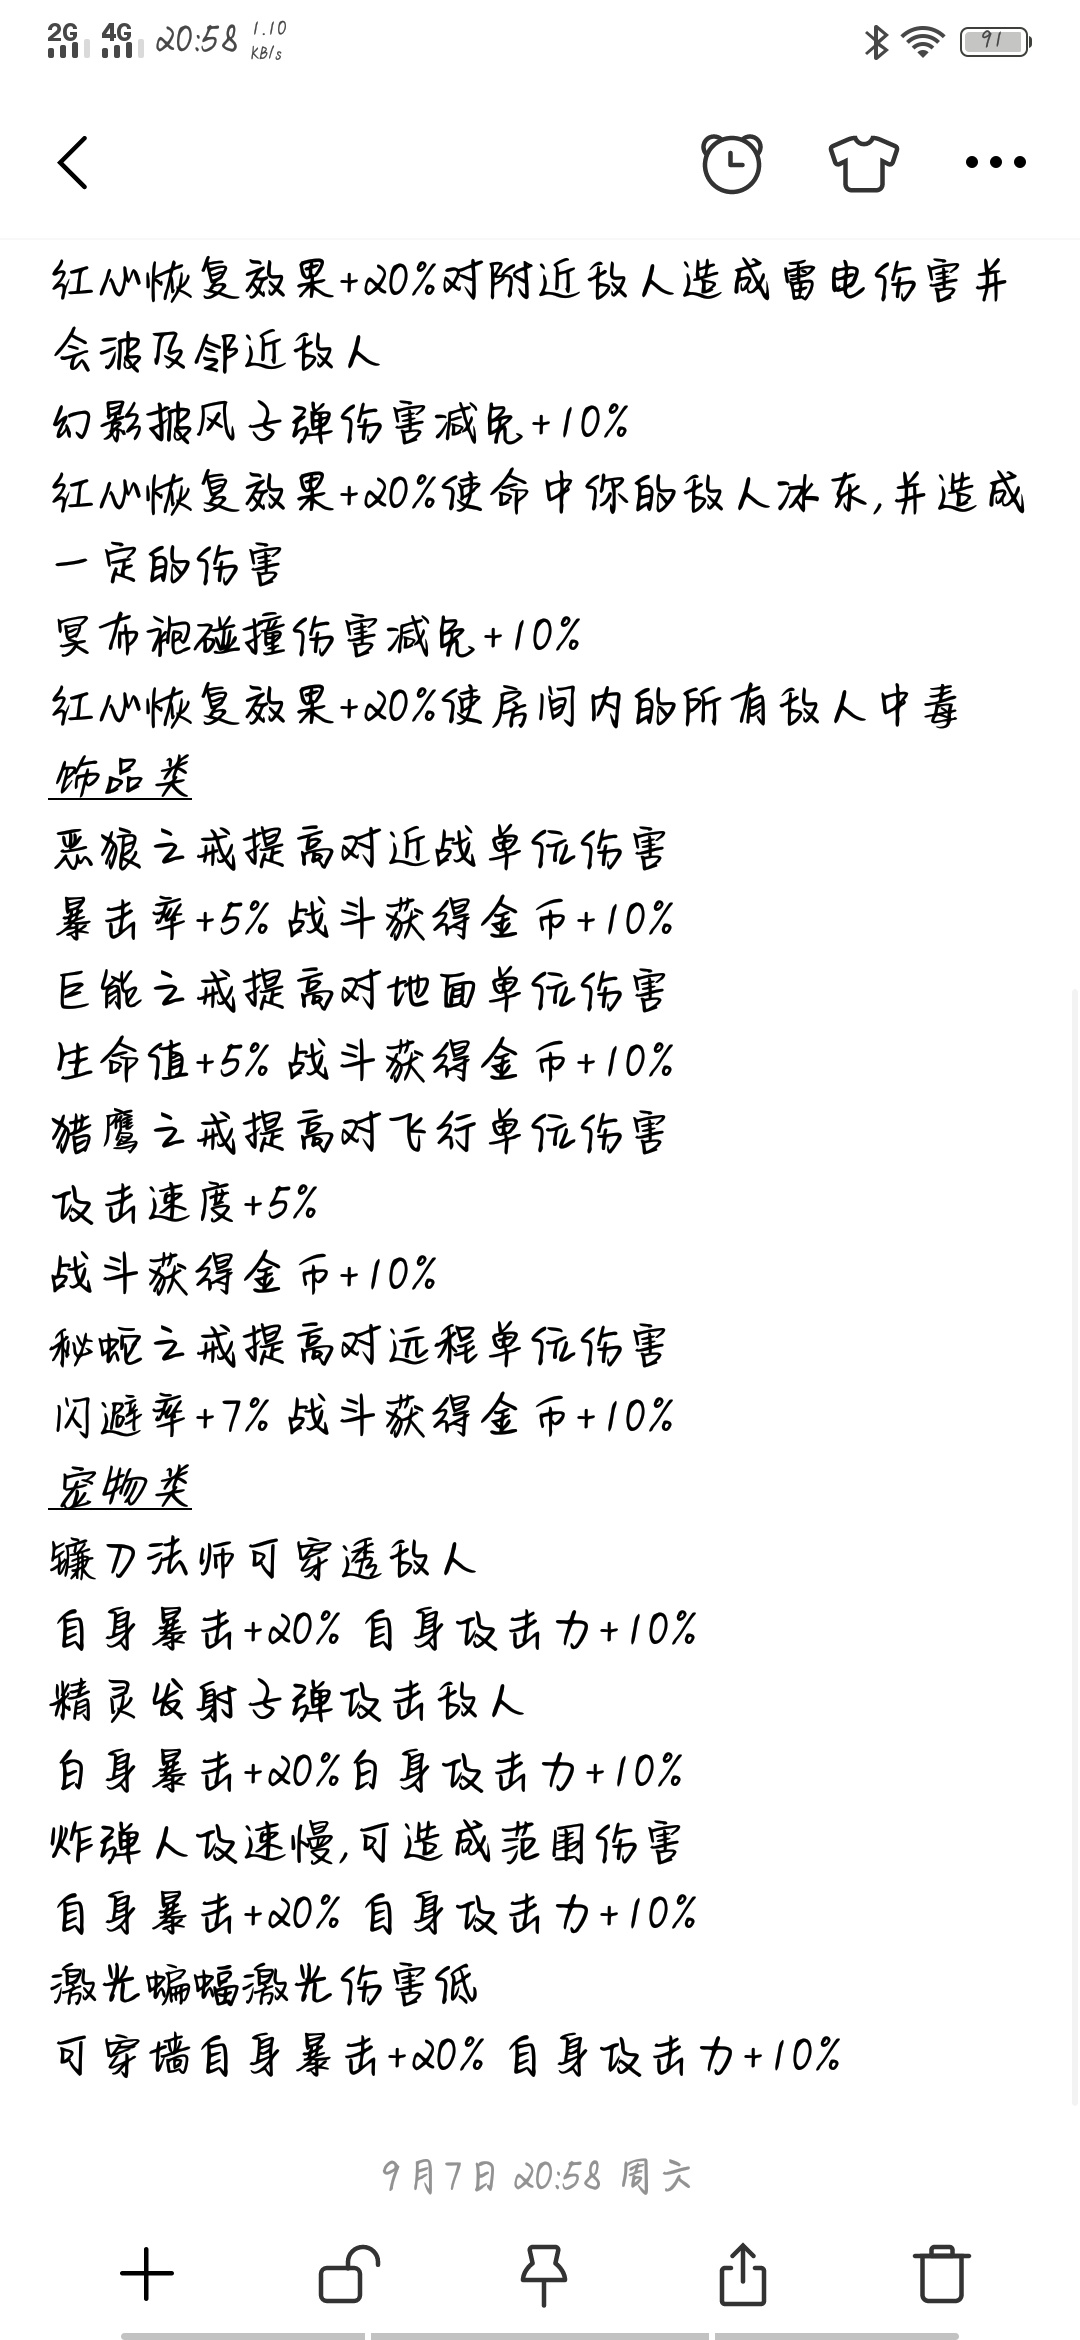 2G 4G 20:58 1.10 KB/s 91
红心恢复效果+20%对附近敌人造成雷电伤害并
会波及邻近敌人
幻影披风子弹伤害减免+10%
红心恢复效果+20%使命中你的敌人冰冻,并造成
一定的伤害
冥布袍碰撞伤害减免+10%
红心恢复效果+20%使房间内的所有敌人中毒
饰品类
恶狼之戒提高对近战单位伤害
暴击率+5% 战斗获得金币+10%
巨能之戒提高对地面单位伤害
生命值+5% 战斗获得金币+10%
猎鹰之戒提高对飞行单位伤害
攻击速度+5%
战斗获得金币+10%
秘蛇之戒提高对远程单位伤害
闪避率+7% 战斗获得金币+10%
宠物类
镰刀法师可穿透敌人
自身暴击+20% 自身攻击力+10%
精灵发射子弹攻击敌人
白身暴击+20%白身攻击力+10%
炸弹人攻速慢,可造成范围伤害
自身暴击+20% 自身攻击力+10%
激光蝙蝠激光伤害低
可穿墙自身暴击+20% 自身攻击力+10%
9月7日 20:58 周六